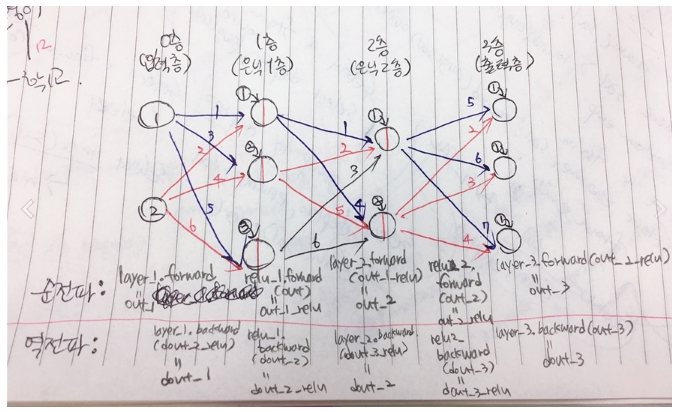 12
0층 1층 2층 3층
(입력층) (은닉1층) (은닉2층) (출력층)
1 ① 1 ① 1 ① 5 ①
3 2 ② 2 2
4 3 6 ①
2 5 ③ 5 4 ② 3
6 6 7 4 ①
순전파: layer_1.forward relu_1.forward layer_2.forward relu_2. layer_3.forward(out_2_relu)
(out) (out_1_relu) forward
out_1 out_1_relu out_2 (out_2) out_3
out_2_relu
역전파: layer_1.backward relu_1. layer_2.backward relu2_ layer_3.backward(out_3)
(dout_2_relu) backward (dout_3_relu) backward
(dout_2) (dout_3) dout_3
dout_1 dout_2_relu dout_2 dout_3_relu